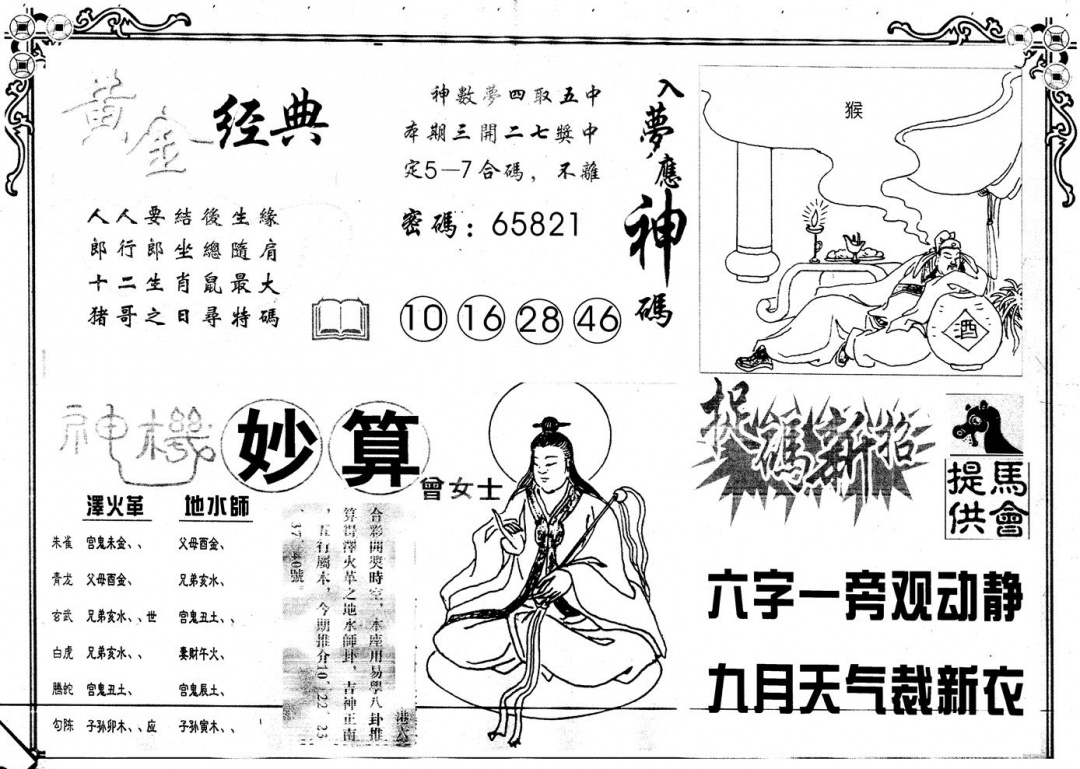 黄金经典
人人要結後生緣
郎行郎坐總隨肩
十二生肖鼠最大
猪哥之日尋特碼
神數夢四取五中
本期三開二七獎中
定5—7合碼，不離
密碼：65821
10 16 28 46
入夢應神碼
猴
酒
神機妙算
曾女士
澤火革 地水師
朱雀 官鬼未金、、 父母酉金、
青龙 父母酉金、 兄弟亥水、
玄武 兄弟亥水、、世 官鬼丑土、、
白虎 兄弟亥水、、 妻財午火、
騰蛇 官鬼丑土、 官鬼辰土、
勾陈 子孙卯木、、应 子孙寅木、、
合彩開奖時空，本座用易學八卦推
算得澤火革之地水師卦，吉神正南
，五行屬木，今期推介10、22、23
、37、40號
港六
捉碼新招
馬會提供
六字一旁观动静
九月天气裁新衣